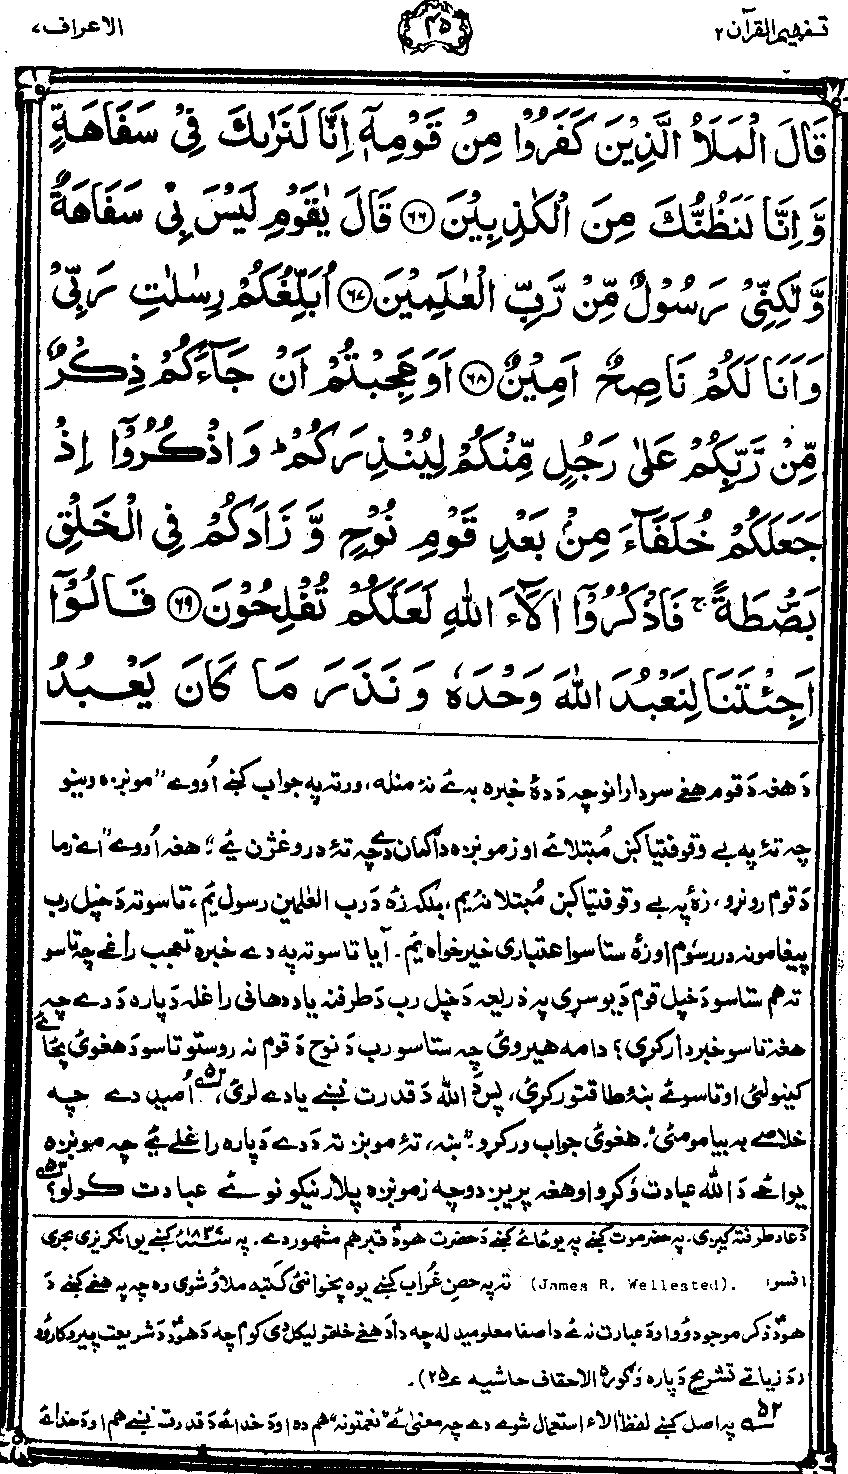 تفهیم القرآن ۲
۴۵
الاعراف ۷
قَالَ الْمَلَاُ الَّذِيْنَ كَفَرُوْا مِنْ قَوْمِهٖٓ اِنَّا لَنَرٰىكَ فِيْ سَفَاهَةٍ
وَّ اِنَّا لَنَظُنُّكَ مِنَ الْكٰذِبِيْنَ ﴿۶۶﴾ قَالَ يٰقَوْمِ لَيْسَ بِيْ سَفَاهَةٌ
وَّلٰكِنِّيْ رَسُوْلٌ مِّنْ رَّبِّ الْعٰلَمِيْنَ ﴿۶۷﴾ اُبَلِّغُكُمْ رِسٰلٰتِ رَبِّيْ
وَاَنَا لَكُمْ نَاصِحٌ اَمِيْنٌ ﴿۶۸﴾ اَوَعَجِبْتُمْ اَنْ جَآءَكُمْ ذِكْرٌ
مِّنْ رَّبِّكُمْ عَلٰى رَجُلٍ مِّنْكُمْ لِيُنْذِرَكُمْ ؕ وَاذْكُرُوْٓا اِذْ
جَعَلَكُمْ خُلَفَآءَ مِنْۢ بَعْدِ قَوْمِ نُوْحٍ وَّ زَادَكُمْ فِي الْخَلْقِ
بَصْۜطَةً ۚ فَاذْكُرُوْٓا اٰلَآءَ اللّٰهِ لَعَلَّكُمْ تُفْلِحُوْنَ ﴿۶۹﴾ قَالُوْٓا
اَجِئْتَنَا لِنَعْبُدَ اللّٰهَ وَحْدَهٗ وَ نَذَرَ مَا كَانَ يَعْبُدُ
دَ هغه دَ قوم هغے سردارانو چه دَ دهٔ خبره به ئے نهٔ منله، ورته په جواب کښے اُووے "مونږه وینو
چه تهٔ په بے وقوفتیا کښ مُبتلا ئے او زمونږه دا گمان دے چه تهٔ دروغژن ئے"؛ هغه اُووے "اے زما
دَ قوم رونړو، زهٔ په بے وقوفتیا کښ مُبتلا نهٔ یم، بلکه زهٔ دَ رب العٰلمین رسول یم، تاسو ته دَ خپل رب
پیغامونه دررسوم او زهٔ ستاسو اعتباری خیرخواه یم. آیا تاسو ته په دے خبره تعجب راغے چه تاسو
ته هم ستاسو دَ خپل قوم دَ یو سړی په ذریعه دَ خپل رب دَ طرفنه یاددهانی راغله دَ پاره دَ دے چه
هغه تاسو خبردار کړی؟ دا مه هیروئ چه ستاسو رب دَ نوح دَ قوم نه روستو تاسو دَ هغوئ پځائے
کینولئ او تاسو ئے ښهٔ طاقتور کړئ، پس دَ الله دَ قدرت نښے یادے لرئ، ۵۲ اُمید دے چه
خلاصے به بیا مومئ. هغوئ جواب ورکړو "ښه، تهٔ مونږ ته دَ دے دَ پاره راغلے ئے چه مونږه
یواځے دَ الله عبادت وکړو او هغه پریږدو چه زمونږه پلار نیکونو ئے عبادت کولو؟ ۵۳
دَ عاد طرفته کیږی. په حضرموت کښے په یو ځائے کښے دَ حضرت هودؑ قبر هم مشهور دے. په سنه ۱۸۳۷ء کښے یو انگریزی بحری
افسر (James R. Wellested). ته په حصن غراب کښے یوه پخوانئ کتبه ملاؤ شوی ده چه په هغے کښے دَ
هودؑ ذکر موجود وو او دَ عبارت نه ئے دا صفا معلومیدله چه دا دَ هغے خلقو لیکل دی کوم چه دَ هودؑ دَ شریعت پیروکار وو
(دَ زیاتے تشریح دَ پاره وگورهٔ الاحقاف حاشیه ع۲۵).
۵۲ په اصل کښے لفظ "آلاء" استعمال شوے دے چه معنیٰ ئے "نعمتونه" هم ده او دَ خدائے دَ قدرت نښے هم او دَ خدائے